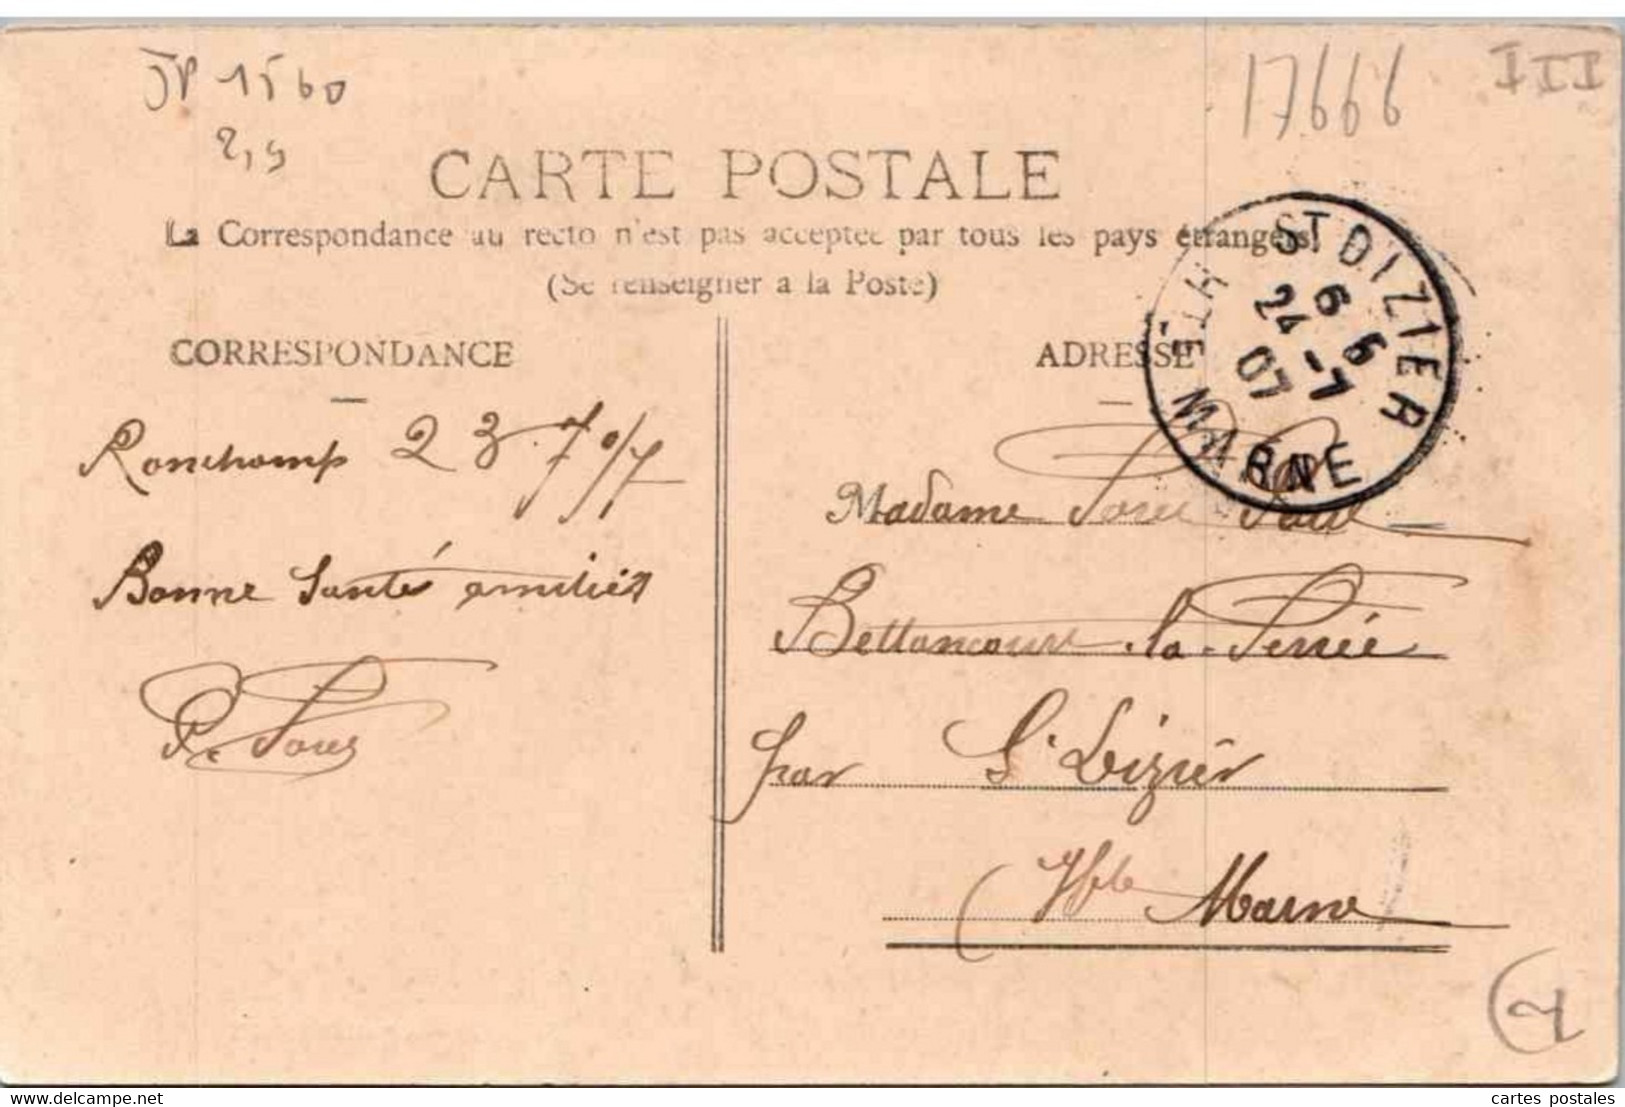 JP 1560
2,5
17666
III
CARTE POSTALE
La Correspondance au recto n'est pas acceptée par tous les pays étrangers.
(Se renseigner à la Poste)
ST DIZIER
6 6
24 -7
07
HTE MARNE
CORRESPONDANCE
Ronchamp 23-7 07
Bonne Santé amitiés
P.
ADRESSE
Madame
Bettancourt-la-Ferrée
par St Dizier
(Hte Marne
cartes postales